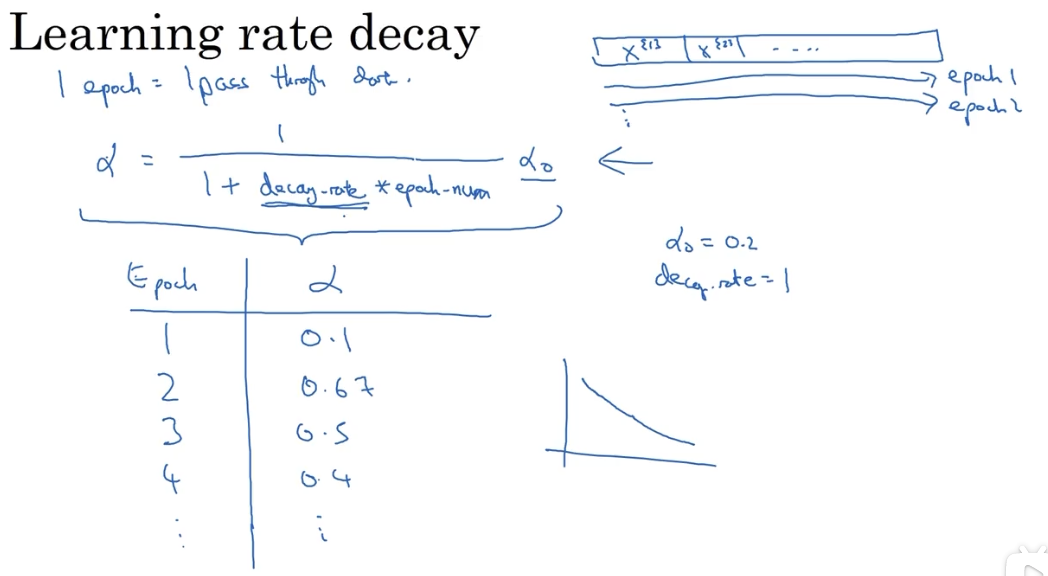 Learning rate decay
1 epoch = 1 pass through dat.
X^{1} X^{2} ....
epoch 1
epoch 2
⋮
α = 1 / (1 + decay-rate * epoch-num) α₀ ←
α₀ = 0.2
decay.rate = 1
Epoch | α
1 | 0.1
2 | 0.67
3 | 0.5
4 | 0.4
⋮ | ⋮